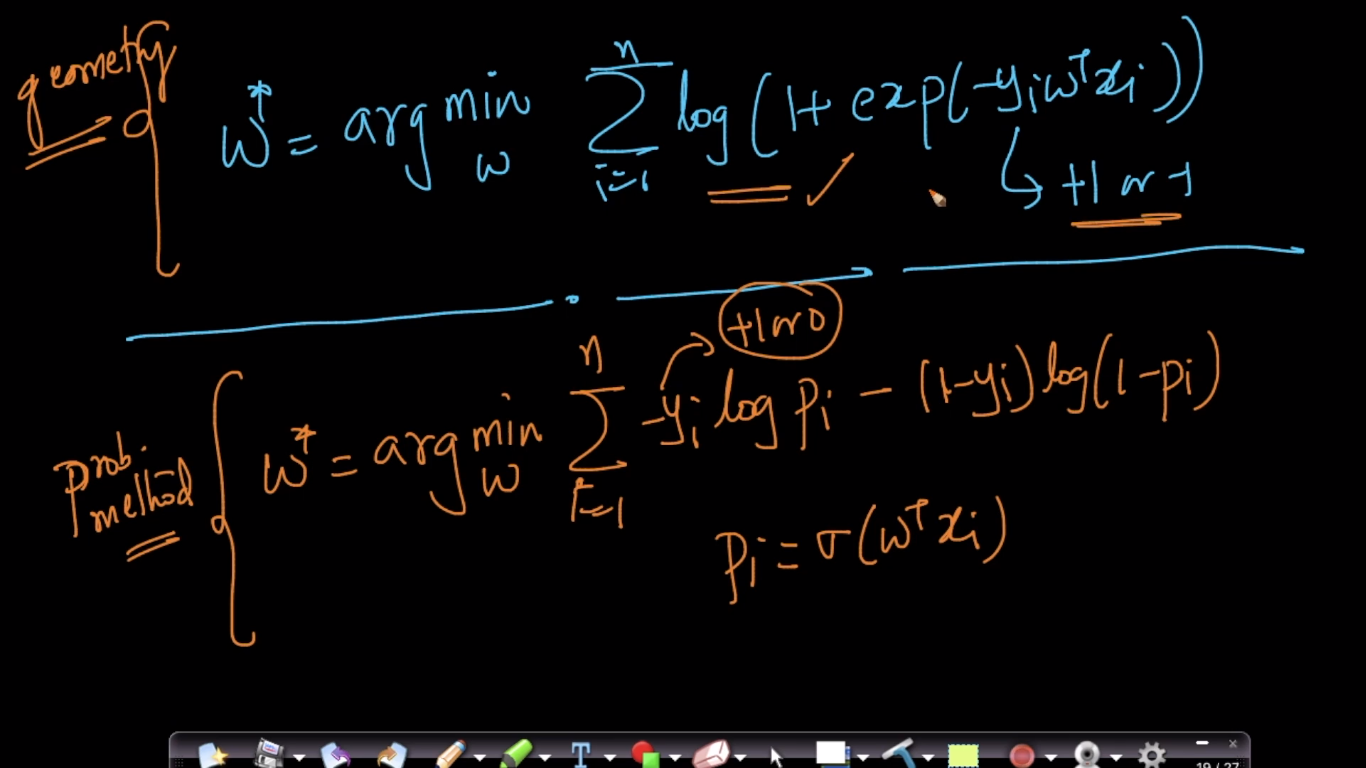 geometry
w* = arg min_w Σ_{i=1}^{n} log(1+ exp(-y_i w^T x_i))
+1 or -1
+1 or 0
prob. method
w* = arg min_w Σ_{i=1}^{n} -y_i log p_i - (1-y_i) log(1-p_i)
p_i = σ(w^T x_i)
T
19 / 27